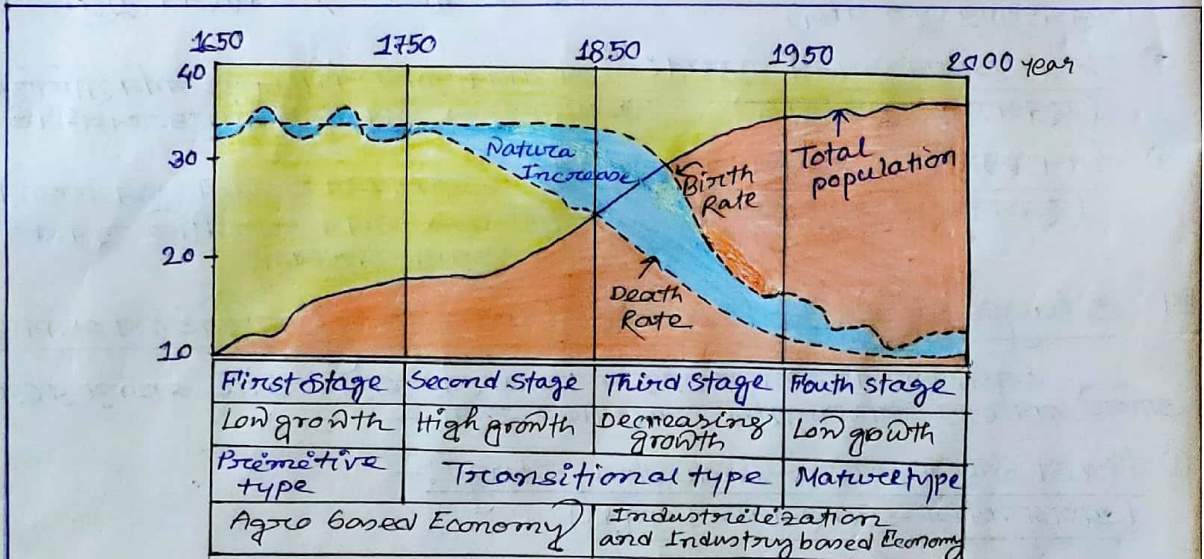 1650 1750 1850 1950 2000 year
40
30
20
10
Natura
Increase
Birth
Rate
Total
population
Death
Rate
First Stage Second Stage Third Stage Fouth stage
Low growth High growth Decreasing growth Low growth
Primetive type Transitional type Mature type
Agro based Economy Industrilization and Industry based Economy